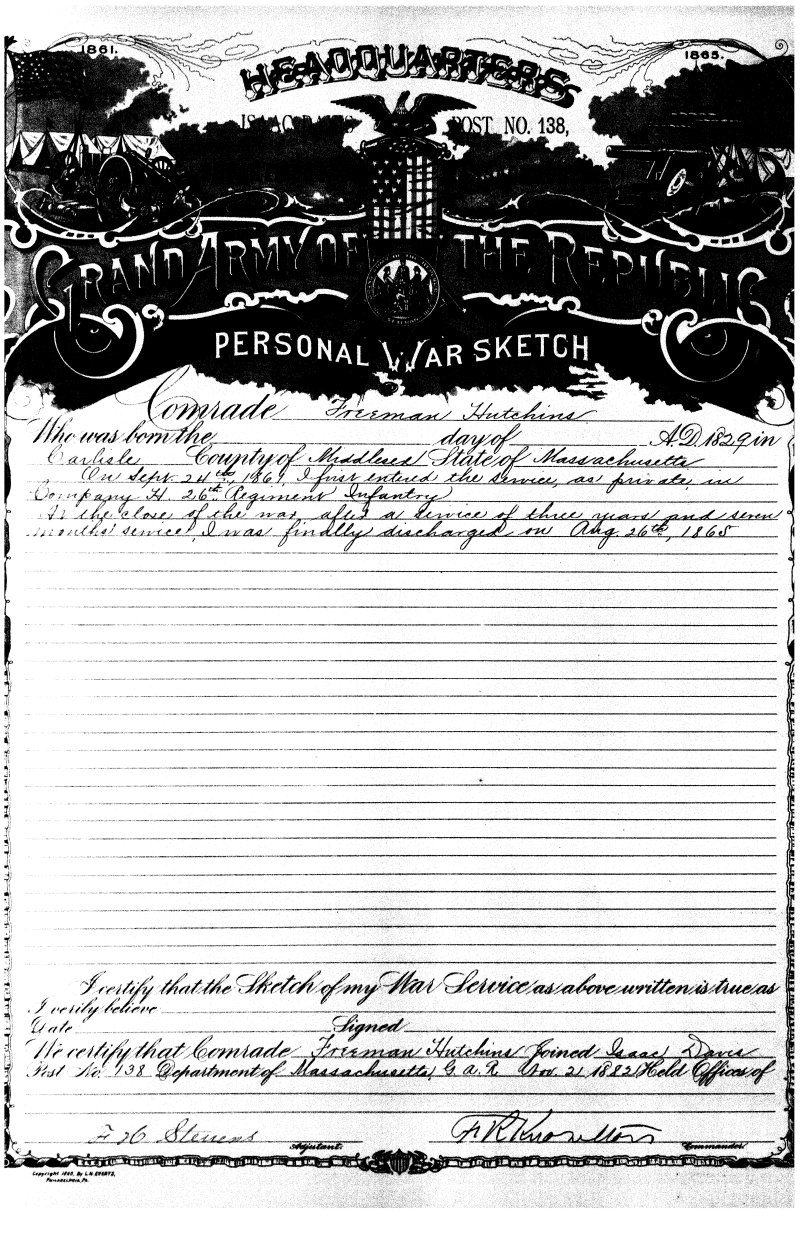 1861.
1865.
HEADQUARTERS
ISAAC DAVIS POST NO. 138,
GRAND ARMY OF THE REPUBLIC
PERSONAL WAR SKETCH
Comrade Freeman Hutchins
Who was born the day of A.D. 1829 in
Carlisle County of Middlesex State of Massachusetts
On Sept. 24th, 1861, I first entered the service, as private in
Company H. 26th Regiment Infantry
At the close of the war, after a service of three years and seven
months' service, I was finally discharged on Aug. 26th, 1865
I certify that the Sketch of my War Service as above written is true as
I verily believe
Date Signed
We certify that Comrade Freeman Hutchins Joined Isaac Davis
Post No. 138 Department of Massachusetts, G.A.R. Nov. 21 1882 Held Offices of
F H Stevens F R Knowlton
Adjutant. Commander
Copyright 1890, By L.H. EVERTS,
PHILADELPHIA, PA.